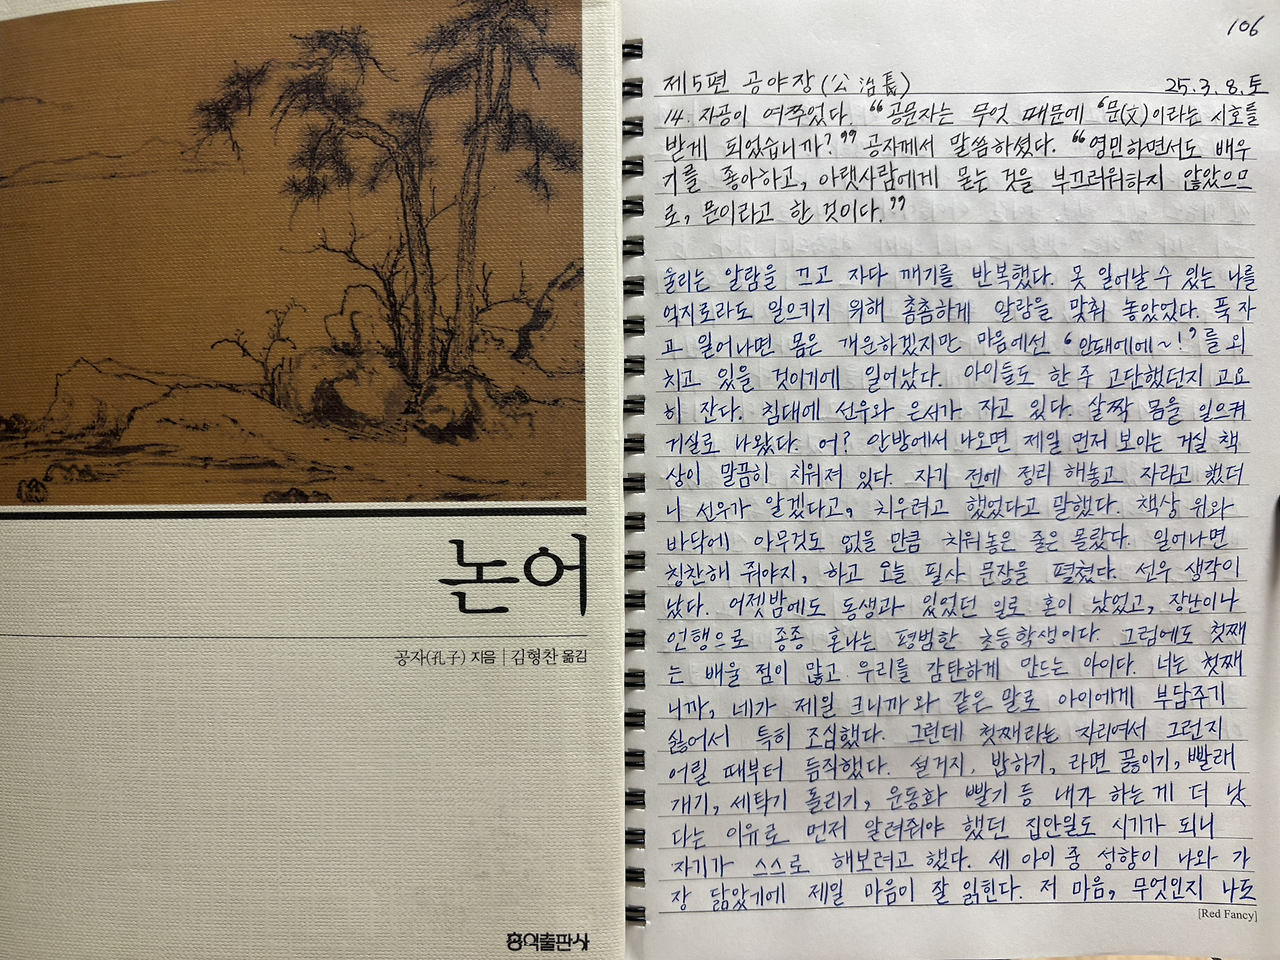 논어
공자(孔子) 지음 | 김형찬 옮김
홍익출판사
106
제5편 공야장(公冶長) 25.3.8.토
14. 자공이 여쭈었다. "공문자는 무엇 때문에 '문(文)'이라는 시호를
받게 되었습니까?" 공자께서 말씀하셨다. "영민하면서도 배우
기를 좋아하고, 아랫사람에게 묻는 것을 부끄러워하지 않았으므
로, 문이라고 한 것이다."
울리는 알람을 끄고 자다 깨기를 반복했다. 못 일어날 수 있는 나를
억지로라도 일으키기 위해 촘촘하게 알람을 맞춰 놓았었다. 푹 자
고 일어나면 몸은 개운하겠지만 마음에선 '안돼에에~!'를 외
치고 있을 것이기에 일어났다. 아이들도 한 주 고단했던지 고요
히 잔다. 침대에 선우와 은서가 자고 있다. 살짝 몸을 일으켜
거실로 나왔다. 어? 안방에서 나오면 제일 먼저 보이는 거실 책
상이 말끔히 치워져 있다. 자기 전에 정리 해놓고 자라고 했더
니 선우가 알겠다고, 치우려고 했었다고 말했다. 책상 위와
바닥에 아무것도 없을 만큼 치워놓은 줄은 몰랐다. 일어나면
칭찬해 줘야지, 하고 오늘 필사 문장을 펼쳤다. 선우 생각이
났다. 어젯밤에도 동생과 있었던 일로 혼이 났었고, 장난이나
언행으로 종종 혼나는 평범한 초등학생이다. 그럼에도 첫째
는 배울 점이 많고 우리를 감탄하게 만드는 아이다. 너는 첫째
니까, 네가 제일 크니까 와 같은 말로 아이에게 부담주기
싫어서 특히 조심했다. 그런데 첫째라는 자리여서 그런지
어릴 때부터 듬직했다. 설거지, 밥하기, 라면 끓이기, 빨래
개기, 세탁기 돌리기, 운동화 빨기 등 내가 하는 게 더 낫
다는 이유로 먼저 알려줘야 했던 집안일도 시기가 되니
자기가 스스로 해보려고 했다. 세 아이 중 성향이 나와 가
장 닮았기에 제일 마음이 잘 읽힌다. 저 마음, 무엇인지 나도
[Red Fancy]